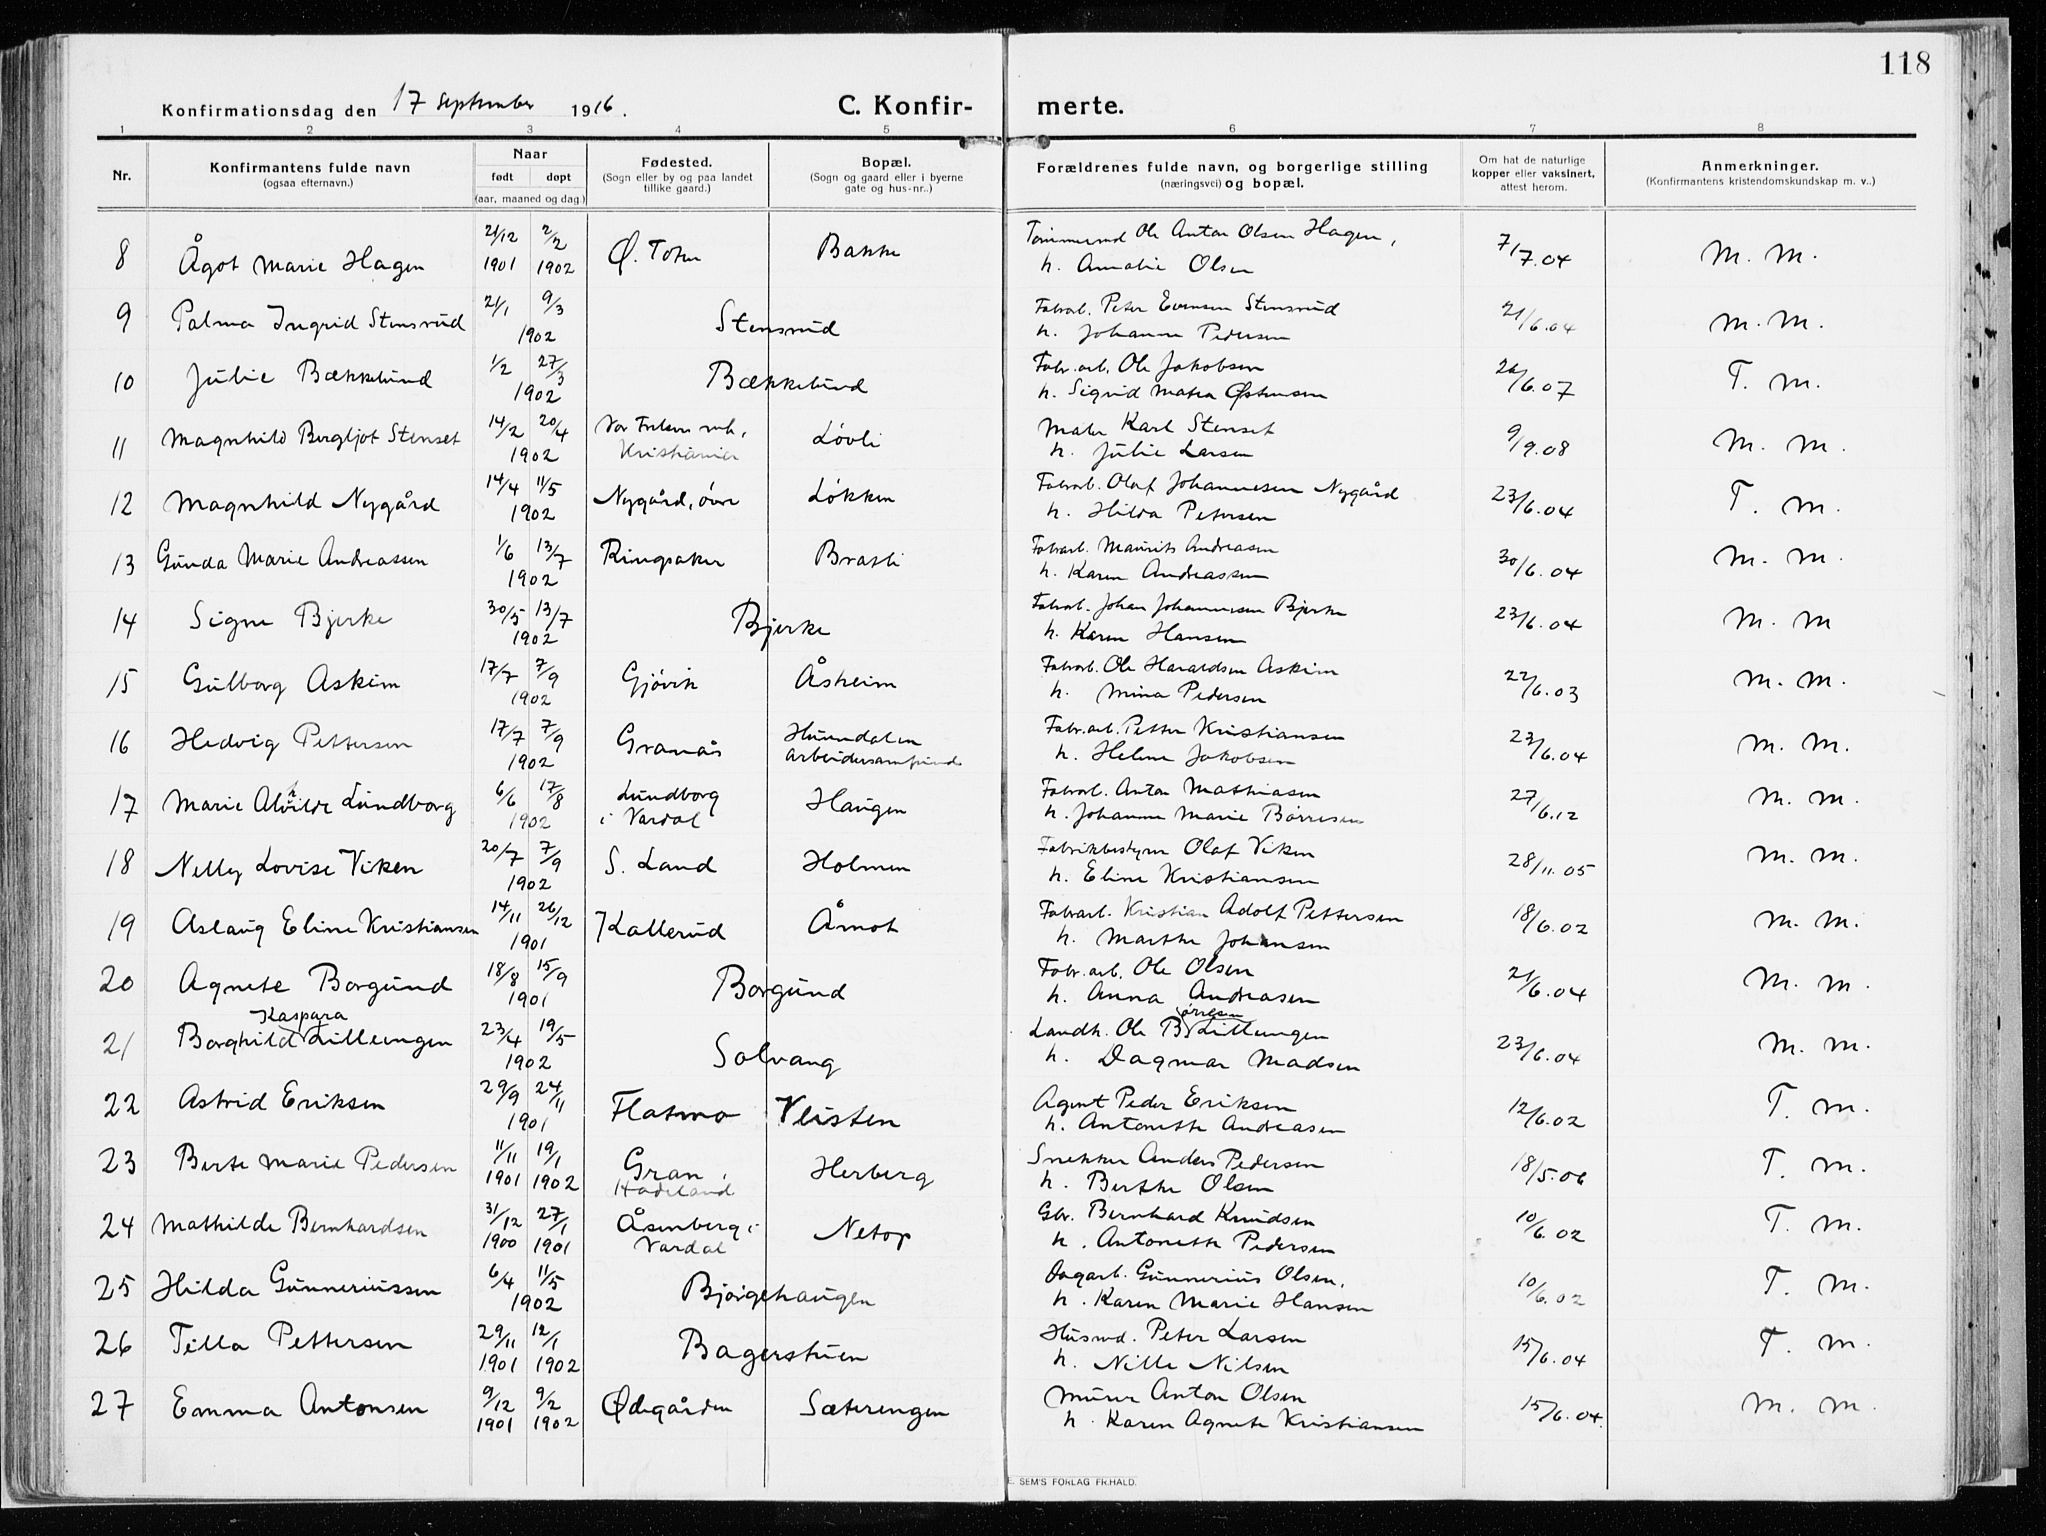 118
Konfirmationsdag den 17 September 1916.
C. Konfir- merte.
1 2 3 4 5 6 7 8
Nr.
Konfirmantens fulde navn
(ogsaa efternavn.)
Naar
født døpt
(aar, maaned og dag.)
Fødested.
(Sogn eller by og paa landet
tillike gaard.)
Bopæl.
(Sogn og gaard eller i byerne
gate og hus-nr..)
Forældrenes fulde navn, og borgerlige stilling
(næringsvei) og bopæl.
Om hat de naturlige
kopper eller vaksinert,
attest herom.
Anmerkninger.
(Konfirmantens kristendomskundskap m. v..)
8 Ågot Marie Hagen 21/12 1901 2/2 1902 Ø. Toten Bakke Ole Anton Olsen Hagen, 7/7.04 M. M.
h. Amalie Olsen
9 Palma Ingrid Stensrud 21/1 9/3 1902 Stensrud Fabrarb. Peter Evensen Stensrud 21/6.04 M. M.
h. Johanne Pedersen
10 Julie Bækkelund 1/2 27/3 1902 Bækkelund Fabr.arb. Ole Jakobsen 26/6.07 T. M.
h. Sigrid Matea Østensen
11 Magnhild Bergljot Stenset 14/2 20/4 1902 Vor Frelsers mh, Kristiania Løvli Maler Karl Stenset 9/9.08 M. M.
h. Julie Larsen
12 Magnhild Nygård 14/4 11/5 1902 Nygård, øvre Løkken Fabrarb. Olaf Johannesen Nygård 23/6.04 T. M.
h. Hilda Petersen
13 Gunda Marie Andreassen 1/6 13/7 1902 Ringsaker Bratli Fabrarb. Maurits Andreasen 30/6.04 M. M.
h. Karen Andreassen
14 Signe Bjerke 30/5 13/7 1902 Bjerke Fabrarb. Johan Johannesen Bjerke 23/6.04 M. M
h. Karen Hansen
15 Gulborg Askim 17/7 7/9 1902 Gjøvik Åsheim Fabrarb. Ole Haraldsen Askim 22/6.03 M. M.
h. Mina Pedersen
16 Hedvig Pettersen 17/7 7/9 1902 Granås Hunndalen arbeidersamfund Fabr.arb. Petter Kristiansen 23/6.04 M. M.
h. Helene Jakobsen
17 Marie Alvilde Lundborg 6/6 17/8 1902 Lundborg i Vardal Haugen Fabrarb. Anton Mathiasen 27/6.12 M. M.
h. Johanne Marie Børresen
18 Nelly Lovise Viken 20/7 7/9 1902 S. Land Holmen Fabrikbestyrer Olaf Viken 28/11.05 M. M.
h. Eline Kristiansen
19 Aslaug Eline Kristiansen 14/11 26/12 1901 Kallerud Åmot Fabrarb. Kristian Adolf Pettersen 18/6.02 M. M.
h. Marthe Johansen
20 Agnete Borgund 18/8 15/9 1901 Borgund Fabr.arb. Ole Olsen 21/6.04 M. M.
h. Anna Andreasen
21 Borghild Kaspara Lilleengen 23/4 19/5 1902 Solvang Landh. Ole Børresen Lilleengen 23/6.04 M. M.
h. Dagmar Madsen
22 Astrid Eriksen 29/9 24/11 1901 Flatmo Vlisten Agent Peder Eriksen 12/6.02 T. M.
h. Antonette Andreasen
23 Berte Marie Pedersen 11/11 1901 19/1 1902 Gran, Hadeland Herberg Snekker Anders Pedersen 18/5.06 T. M.
h. Berthe Olsen
24 Mathilde Bernhardsen 31/12 1900 27/1 1901 Åsenberg i Vardal Netop Gbr. Bernhard Knudsen 10/6.02 T. M.
h. Antonette Pedersen
25 Hilda Gunneriussen 6/4 11/5 1902 Bjørgehaugen Dagarb. Gunnerius Olsen, 10/6.02 T. M.
h. Karen Marie Hansen
26 Tilla Pettersen 29/11 1901 12/1 1902 Bagerstuen Husmd. Peter Larsen 15/6.04 T. M.
h. Nille Nilsen
27 Emma Antonsen 9/12 1901 9/2 1902 Ødegården Sæterengen Murer Anton Olsen 15/6.04. M. M.
h. Karen Agnete Kristiansen
E. SEM'S FORLAG FR.HALD.